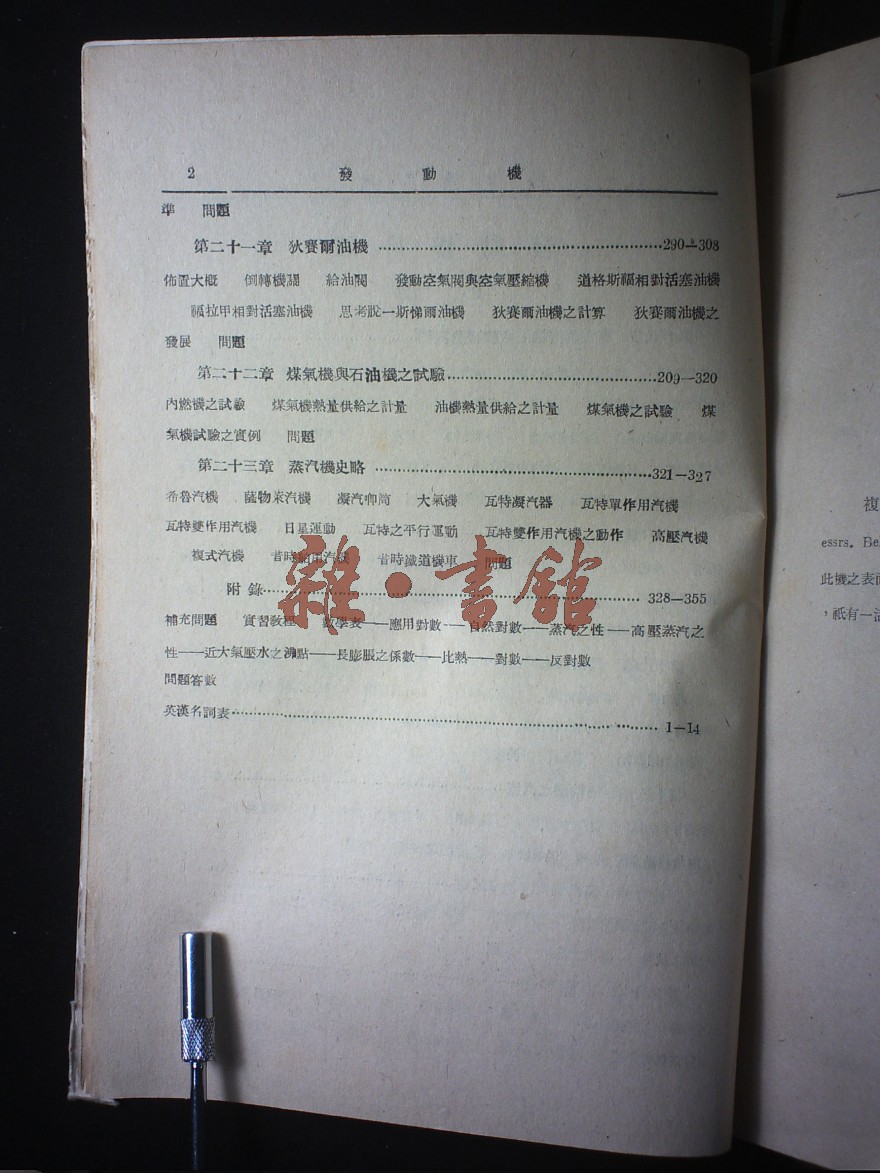 2 發動機
準 問題
第二十一章 狄賽爾油機 290—308
佈置大概 倒轉機關 給油閥 發動空氣閥與空氣壓縮機 道格斯福相對活塞油機
福拉甲相對活塞油機 思考脫一斯梯爾油機 狄賽爾油機之計算 狄賽爾油機之
發展 問題
第二十二章 煤氣機與石油機之試驗 209—320
內燃機之試驗 煤氣機熱量供給之計量 油機熱量供給之計量 煤氣機之試驗 煤
氣機試驗之實例 問題
第二十三章 蒸汽機史略 321—327
希魯汽機 薩物來汽機 凝汽唧筒 大氣機 瓦特凝汽器 瓦特單作用汽機
瓦特雙作用汽機 日星運動 瓦特之平行運動 瓦特雙作用汽機之動作 高壓汽機
複式汽機 昔時船用汽機 昔時鐵道機車 問題
附錄 328—355
補充問題 實習教程 數學表——應用對數——自然對數——蒸汽之性——高壓蒸汽之
性——近大氣壓水之沸點——長膨脹之係數——比熱——對數——反對數
問題答數
英漢名詞表 1—14
雜·書館
複
essrs. Be
此機之表面
，祇有一活